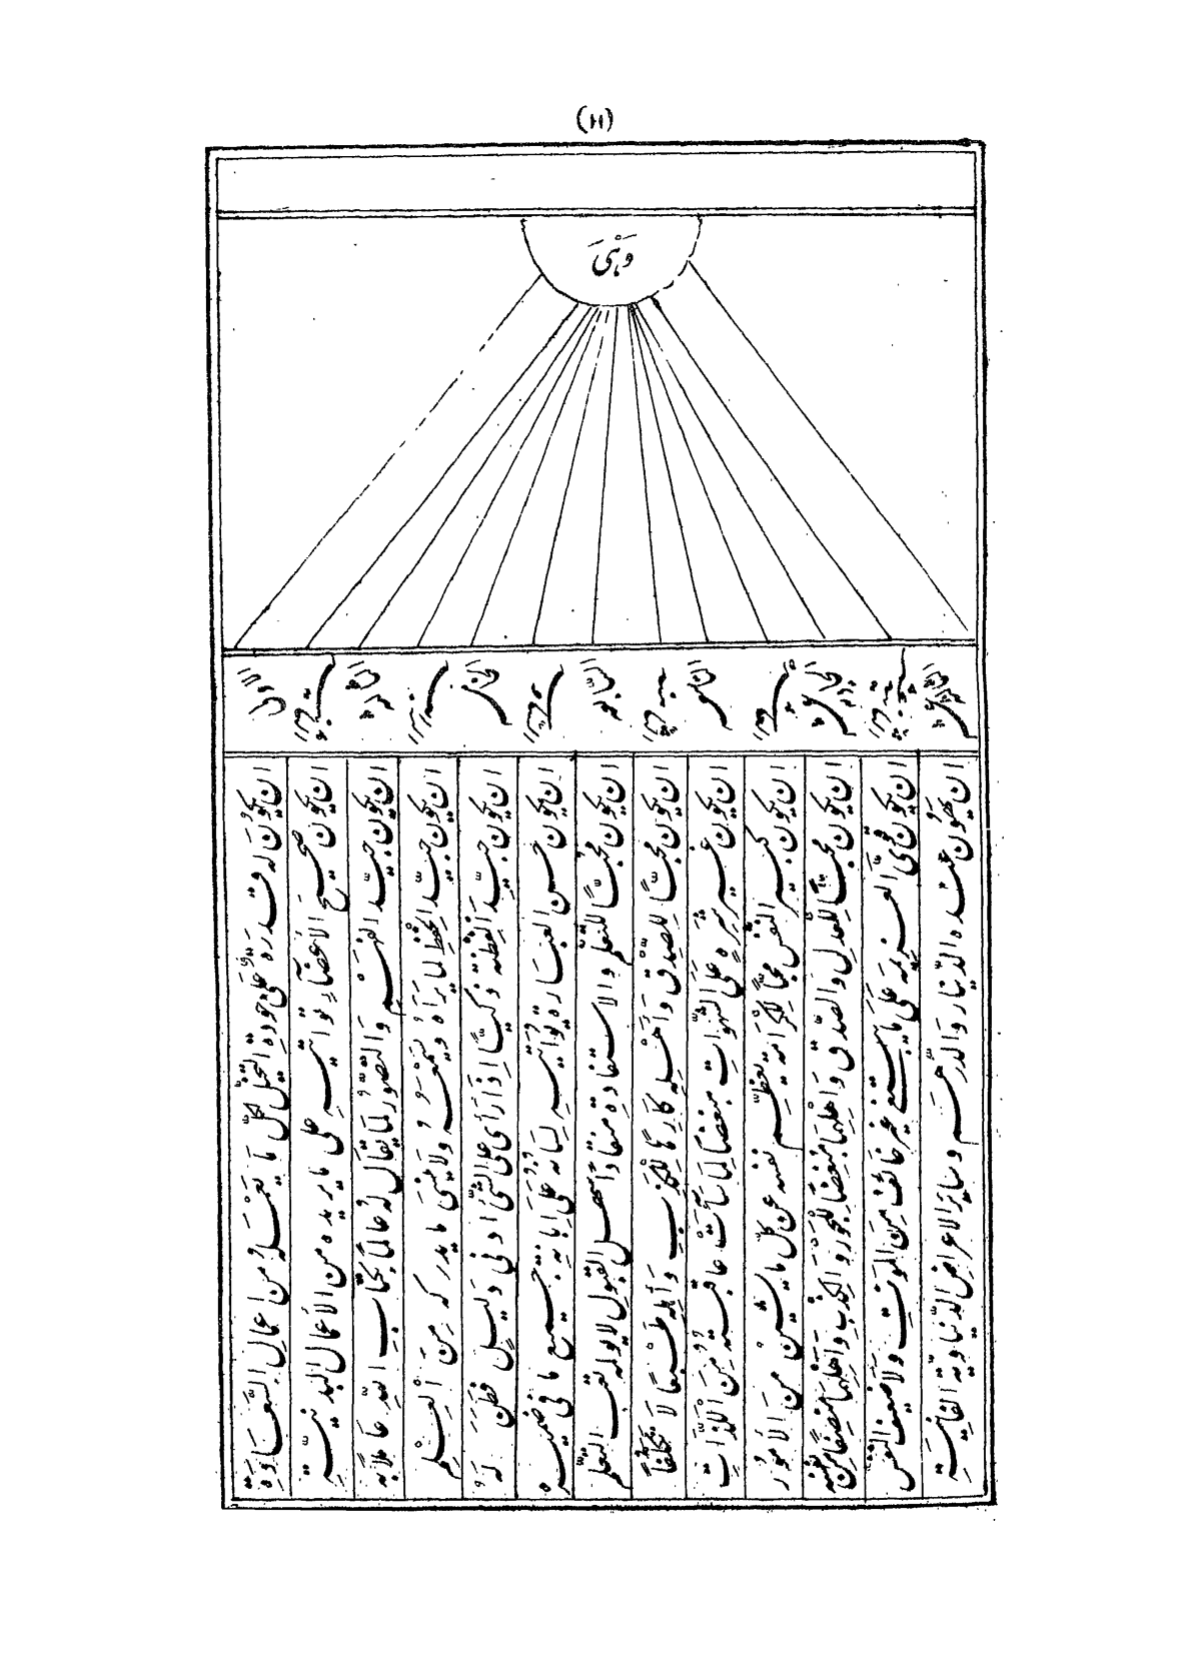 (١١)
وَهْيَ
ان يكون له قدرة على جودة التخيل لكل ما يعمله من اعمال السعادة
ان يكون صحيح الاعضاء تواتيه على ما يريده من الاعمال البدنية
ان يكون جيد الفهم والتصور لما يقال له عالما بكتاب الله عاملا به
ان يكون جيد الحفظ لما يراه ويسمعه ولا ينسى ما يدركه من العلم
ان يكون جيد الفطنة ذكيا اذا رأى على الشئ ادنى دليل فطن له
ان يكون حسن العبارة يواتيه لسانه على ابانة جميع ما في ضميره
ان يكون محبا للتعلم والاستفادة منقادا سهل القبول لا يولمه تعب التعلم
ان يكون محبا للصدق واهله كارها للكذب واهله طبعا لا تكلفا
ان يكون غير شره على الشهوات مبغضا لما ساءت عاقبته من اللذات
ان يكون كبير النفس محبا للكرامة يعظم نفسه عن كل ما يشين من الامور
ان يكون محبا للعدل والصدق واهلهما مبغضا للجور والكذب واهلهما منصفا من نفسه
ان يكون قوي العزيمة على ما ينبغي غير خائف من الموت ولا ضعيف النفس
ان يهون عنده الدينار والدرهم وساير الاعراض الدنياوية الفانية